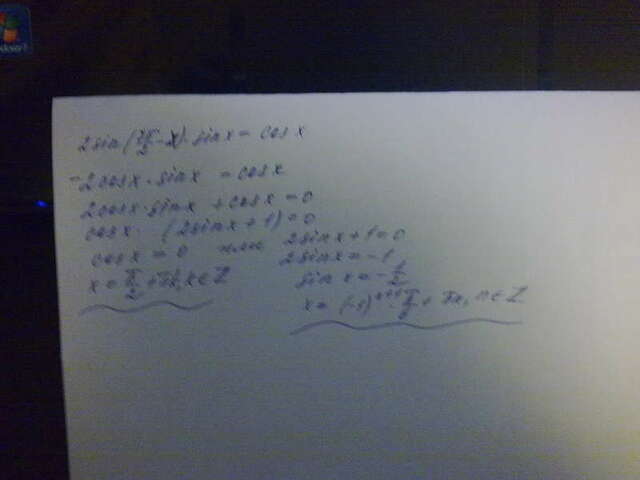 2sin(7π/2 - x) · sinx = cosx
-2cosx · sinx = cosx
2cosx · sinx + cosx = 0
cosx · (2sinx + 1) = 0
cosx = 0 или 2sinx + 1 = 0
2sinx = -1
x = π/2 + πk, k ∈ Z
sinx = -1/2
x = (-1)ⁿ⁺¹ π/6 + πn, n ∈ Z